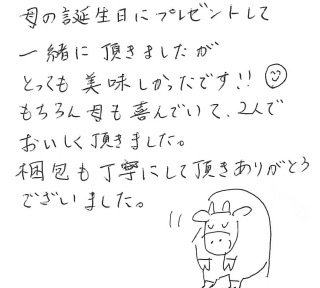 母の誕生日にプレゼントして
一緒に頂きましたが
とっても美味しかったです!!
もちろん母も喜んでいて、2人で
おいしく頂きました。
梱包も丁寧にして頂きありがとう
ございました。